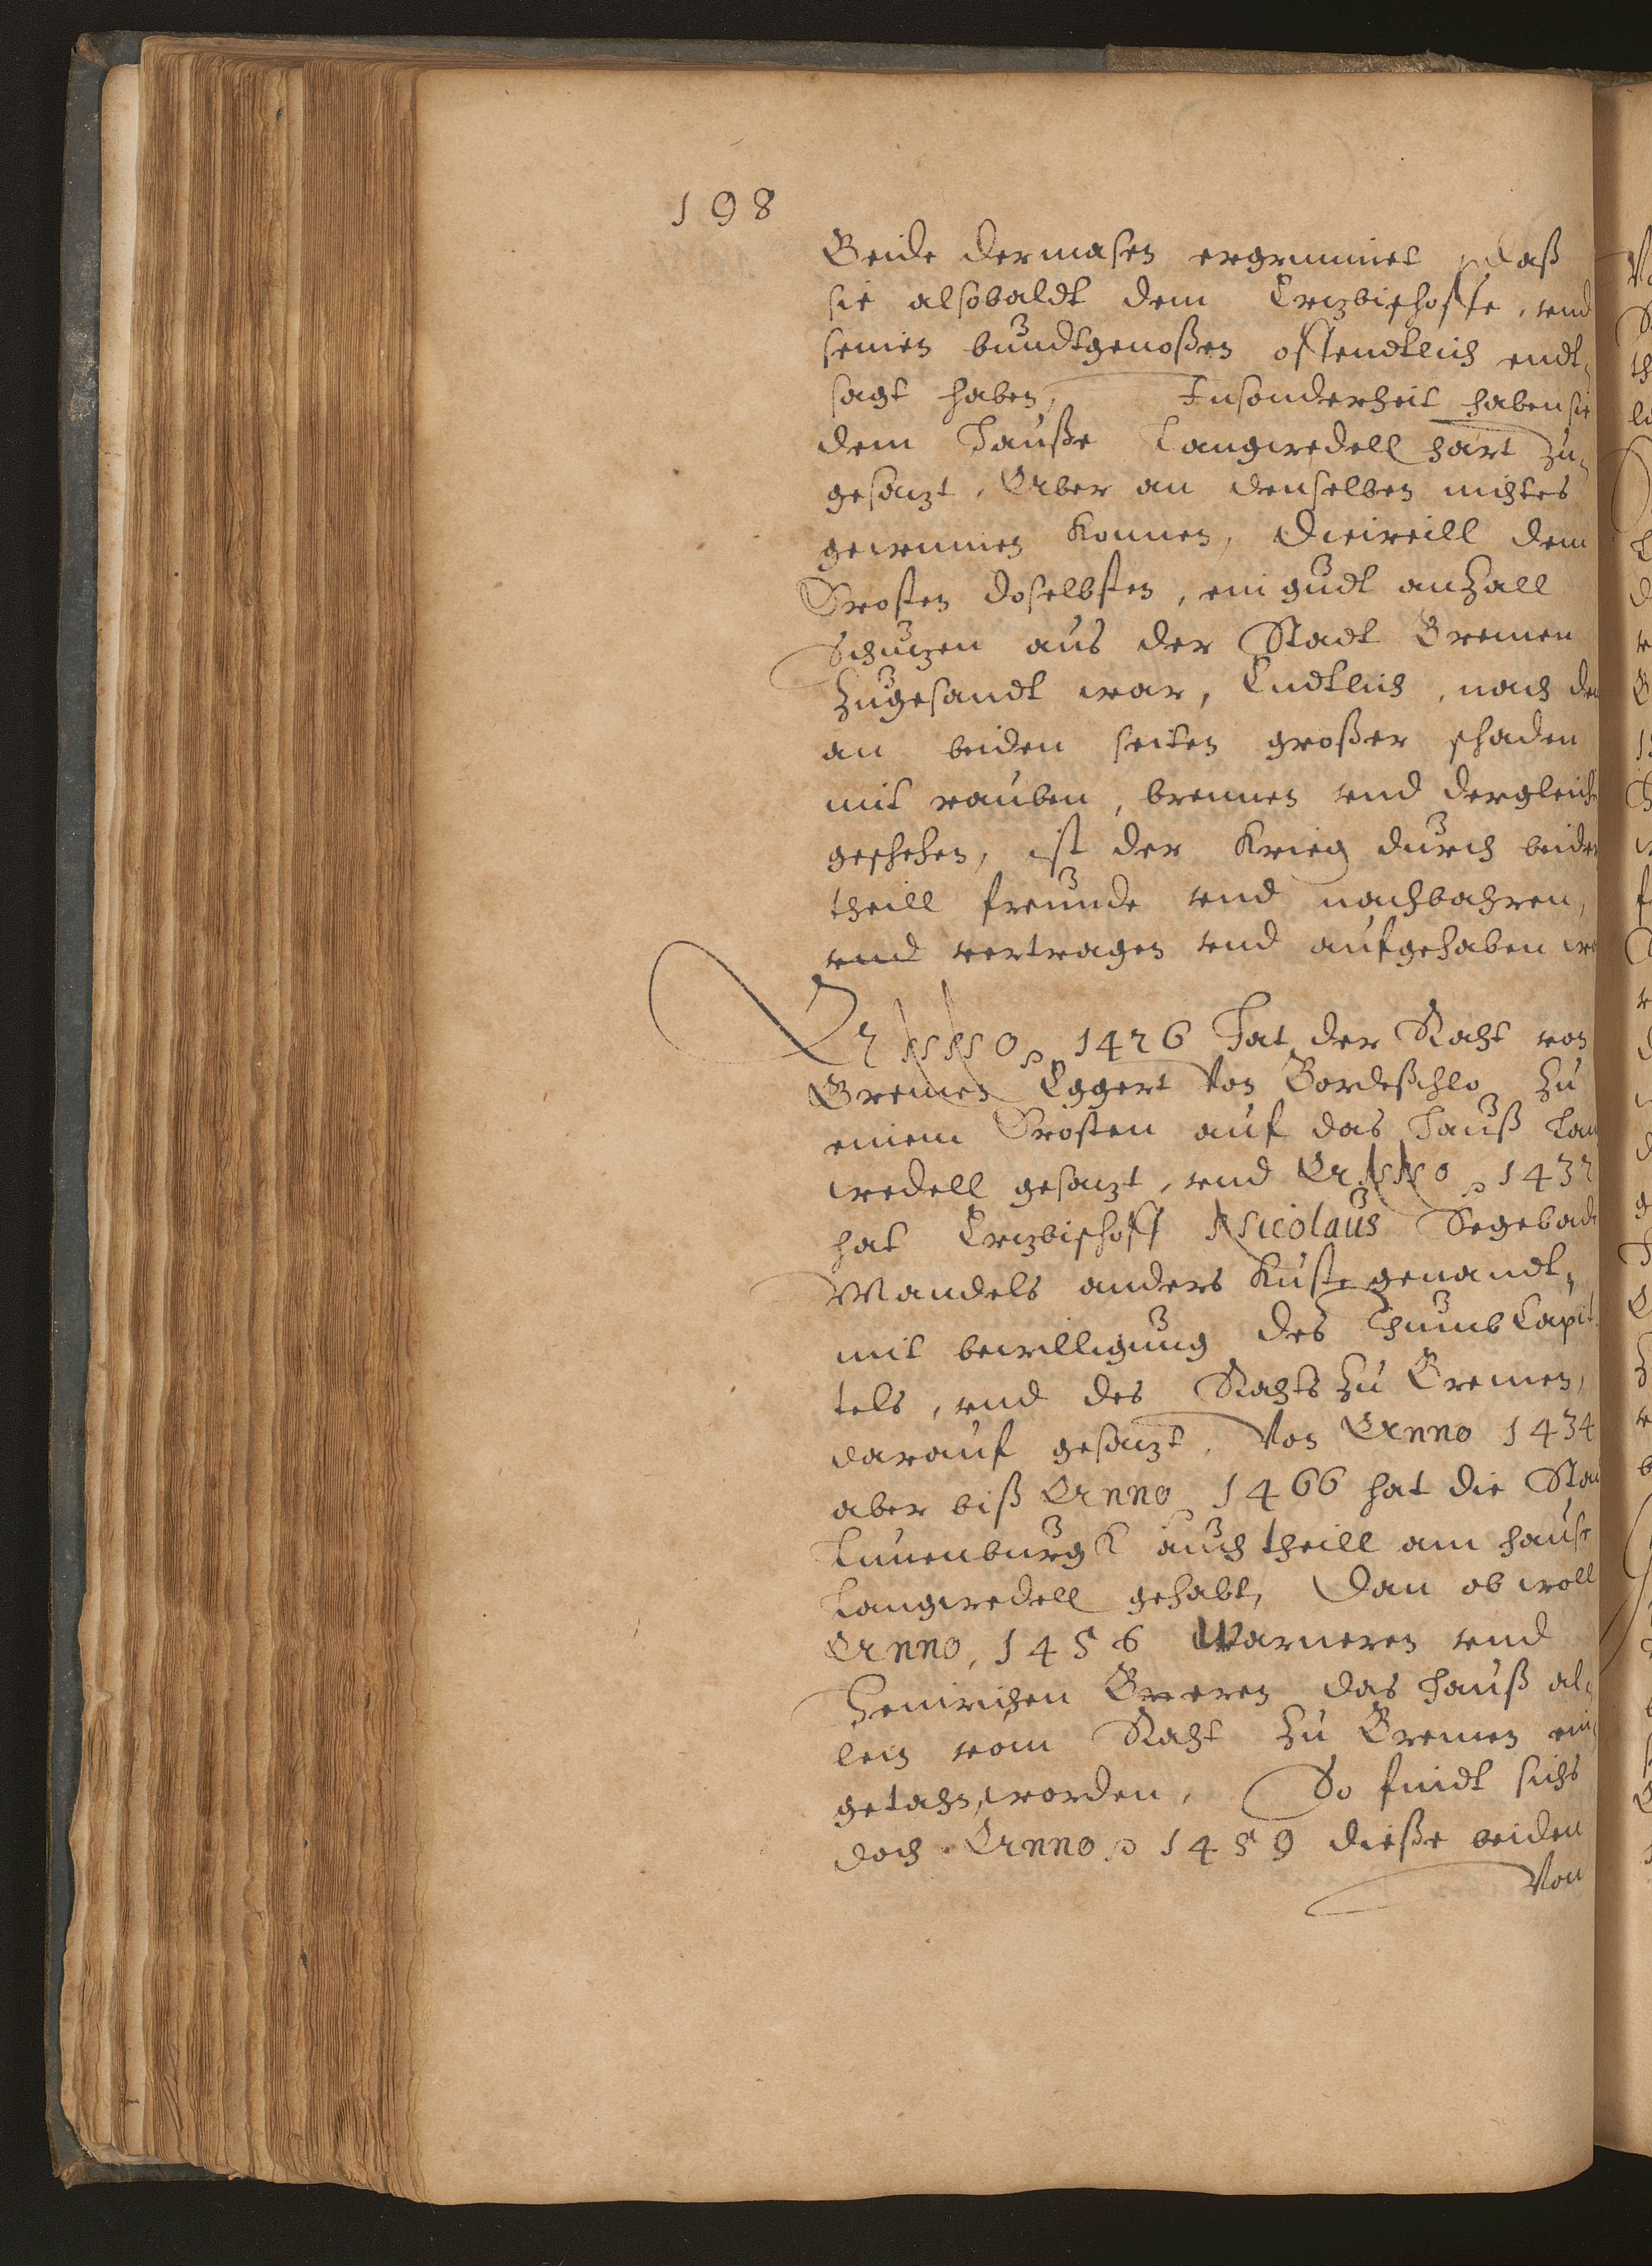 198
Beide dermasen ergrimmet, daß
sie alsobaldt dem Ertzbischoffe, vnd
seinen bundtgenoßen offendtlich endt,
sagt haben, Insonderheit haben sie
dem Hauße Langwedell hart zu,
gesatzt, Aber an denselben nichtes
gewinnen konnen, Dieweill dem
Drosten doselbsten, ein gudt anzall
Schutzen aus der Stadt Bremen
zugesandt war, Endtlich, nach de
an beiden seiten großer schaden
mit rauben, brennen vnd dergleich
geschehen, ist der Krieg durch beide
theill freunde vnd nachbahren,
vnd vertragen vnd aufgehaben
ANNO 1426 Hat der Raht von
Bremen Eggert von Bordeßchlo zu
einem Drosten auf das Hauß Lan
wedell gesatzt, vnd ANNO 1432
hat Ertzbischoff Nicolaus Segebad
Wandels anders Kuste genandt,
mit bewilligung des Thumb Capit
tels, vnd des Rahts zu Bremen,
darauf gesatzt, Von Anno 1434
aber biß Anno 1466 hat die Sta
Lunenburgk auch theill am hause
Langwedell gehabt, Dan ob woll
Anno, 1456 Warneren vnd
Heinrichen Greren das Hauß al,
lein vom Raht zu Bremen ein
getahn worden, So findt sichs
doch Anno 1459 dieße beiden
Von